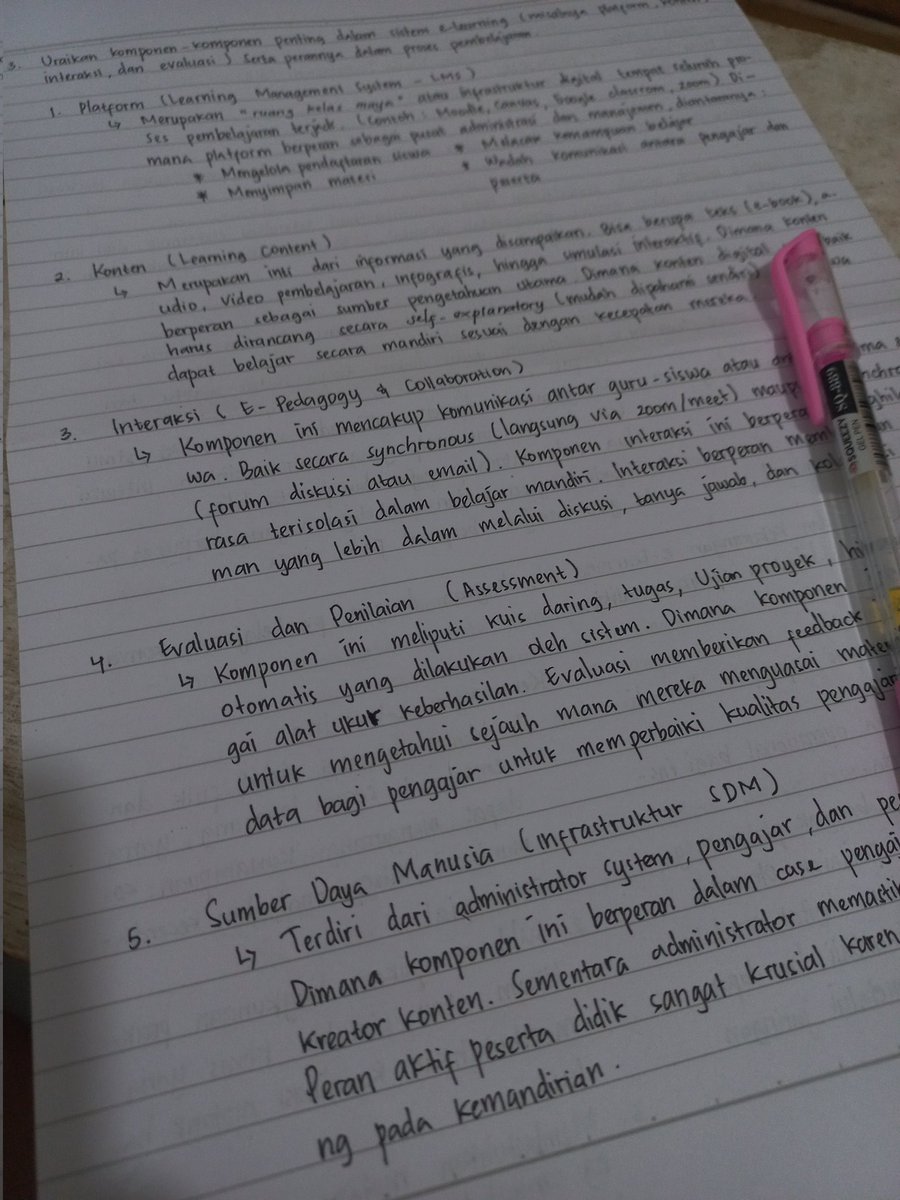 3. Uraikan komponen-komponen penting dalam sistem e-learning (misalnya platform, konten,
interaksi, dan evaluasi) serta perannya dalam proses pembelajaran.
1. Platform (Learning Management System - LMS)
↳ Merupakan "ruang kelas maya" atau infrastruktur digital tempat seluruh pro-
ses pembelajaran terjadi. (contoh: Moodle, Canvas, Google classroom, zoom). Di-
mana platform berperan sebagai pusat administrasi dan manajemen, diantaranya:
* Mengelola pendaftaran siswa * Melacak kemampuan belajar
* Menyimpan materi * Wadah komunikasi antara pengajar dan
peserta
2. Konten (Learning Content)
↳ Merupakan inti dari informasi yang disampaikan. Bisa berupa teks (e-book), a-
udio, video pembelajaran, infografis, hingga simulasi interaktif. Dimana konten
berperan sebagai sumber pengetahuan utama. Dimana konten digital baik
harus dirancang secara self-explanatory (mudah dipahami sendiri)
dapat belajar secara mandiri sesuai dengan kecepatan mereka
3. Interaksi (E-Pedagogy & Collaboration)
↳ Komponen ini mencakup komunikasi antar guru-siswa atau
wa. Baik secara synchronous (langsung via zoom/meet)
(forum diskusi atau email). Komponen interaksi ini
rasa terisolasi dalam belajar mandiri. Interaksi berperan
man yang lebih dalam melalui diskusi, tanya jawab, dan
4. Evaluasi dan Penilaian (Assessment)
↳ Komponen ini meliputi kuis daring, tugas, Ujian proyek,
otomatis yang dilakukan oleh sistem. Dimana komponen
gai alat ukur keberhasilan. Evaluasi memberikan feedback
untuk mengetahui sejauh mana mereka menguasai
data bagi pengajar untuk memperbaiki kualitas
5. Sumber Daya Manusia (Infrastruktur SDM)
↳ Terdiri dari administrator system, pengajar, dan
Dimana komponen ini berperan dalam case
kreator konten. Sementara administrator
Peran aktif peserta didik sangat krusial
ng pada kemandirian.
GEL PEN